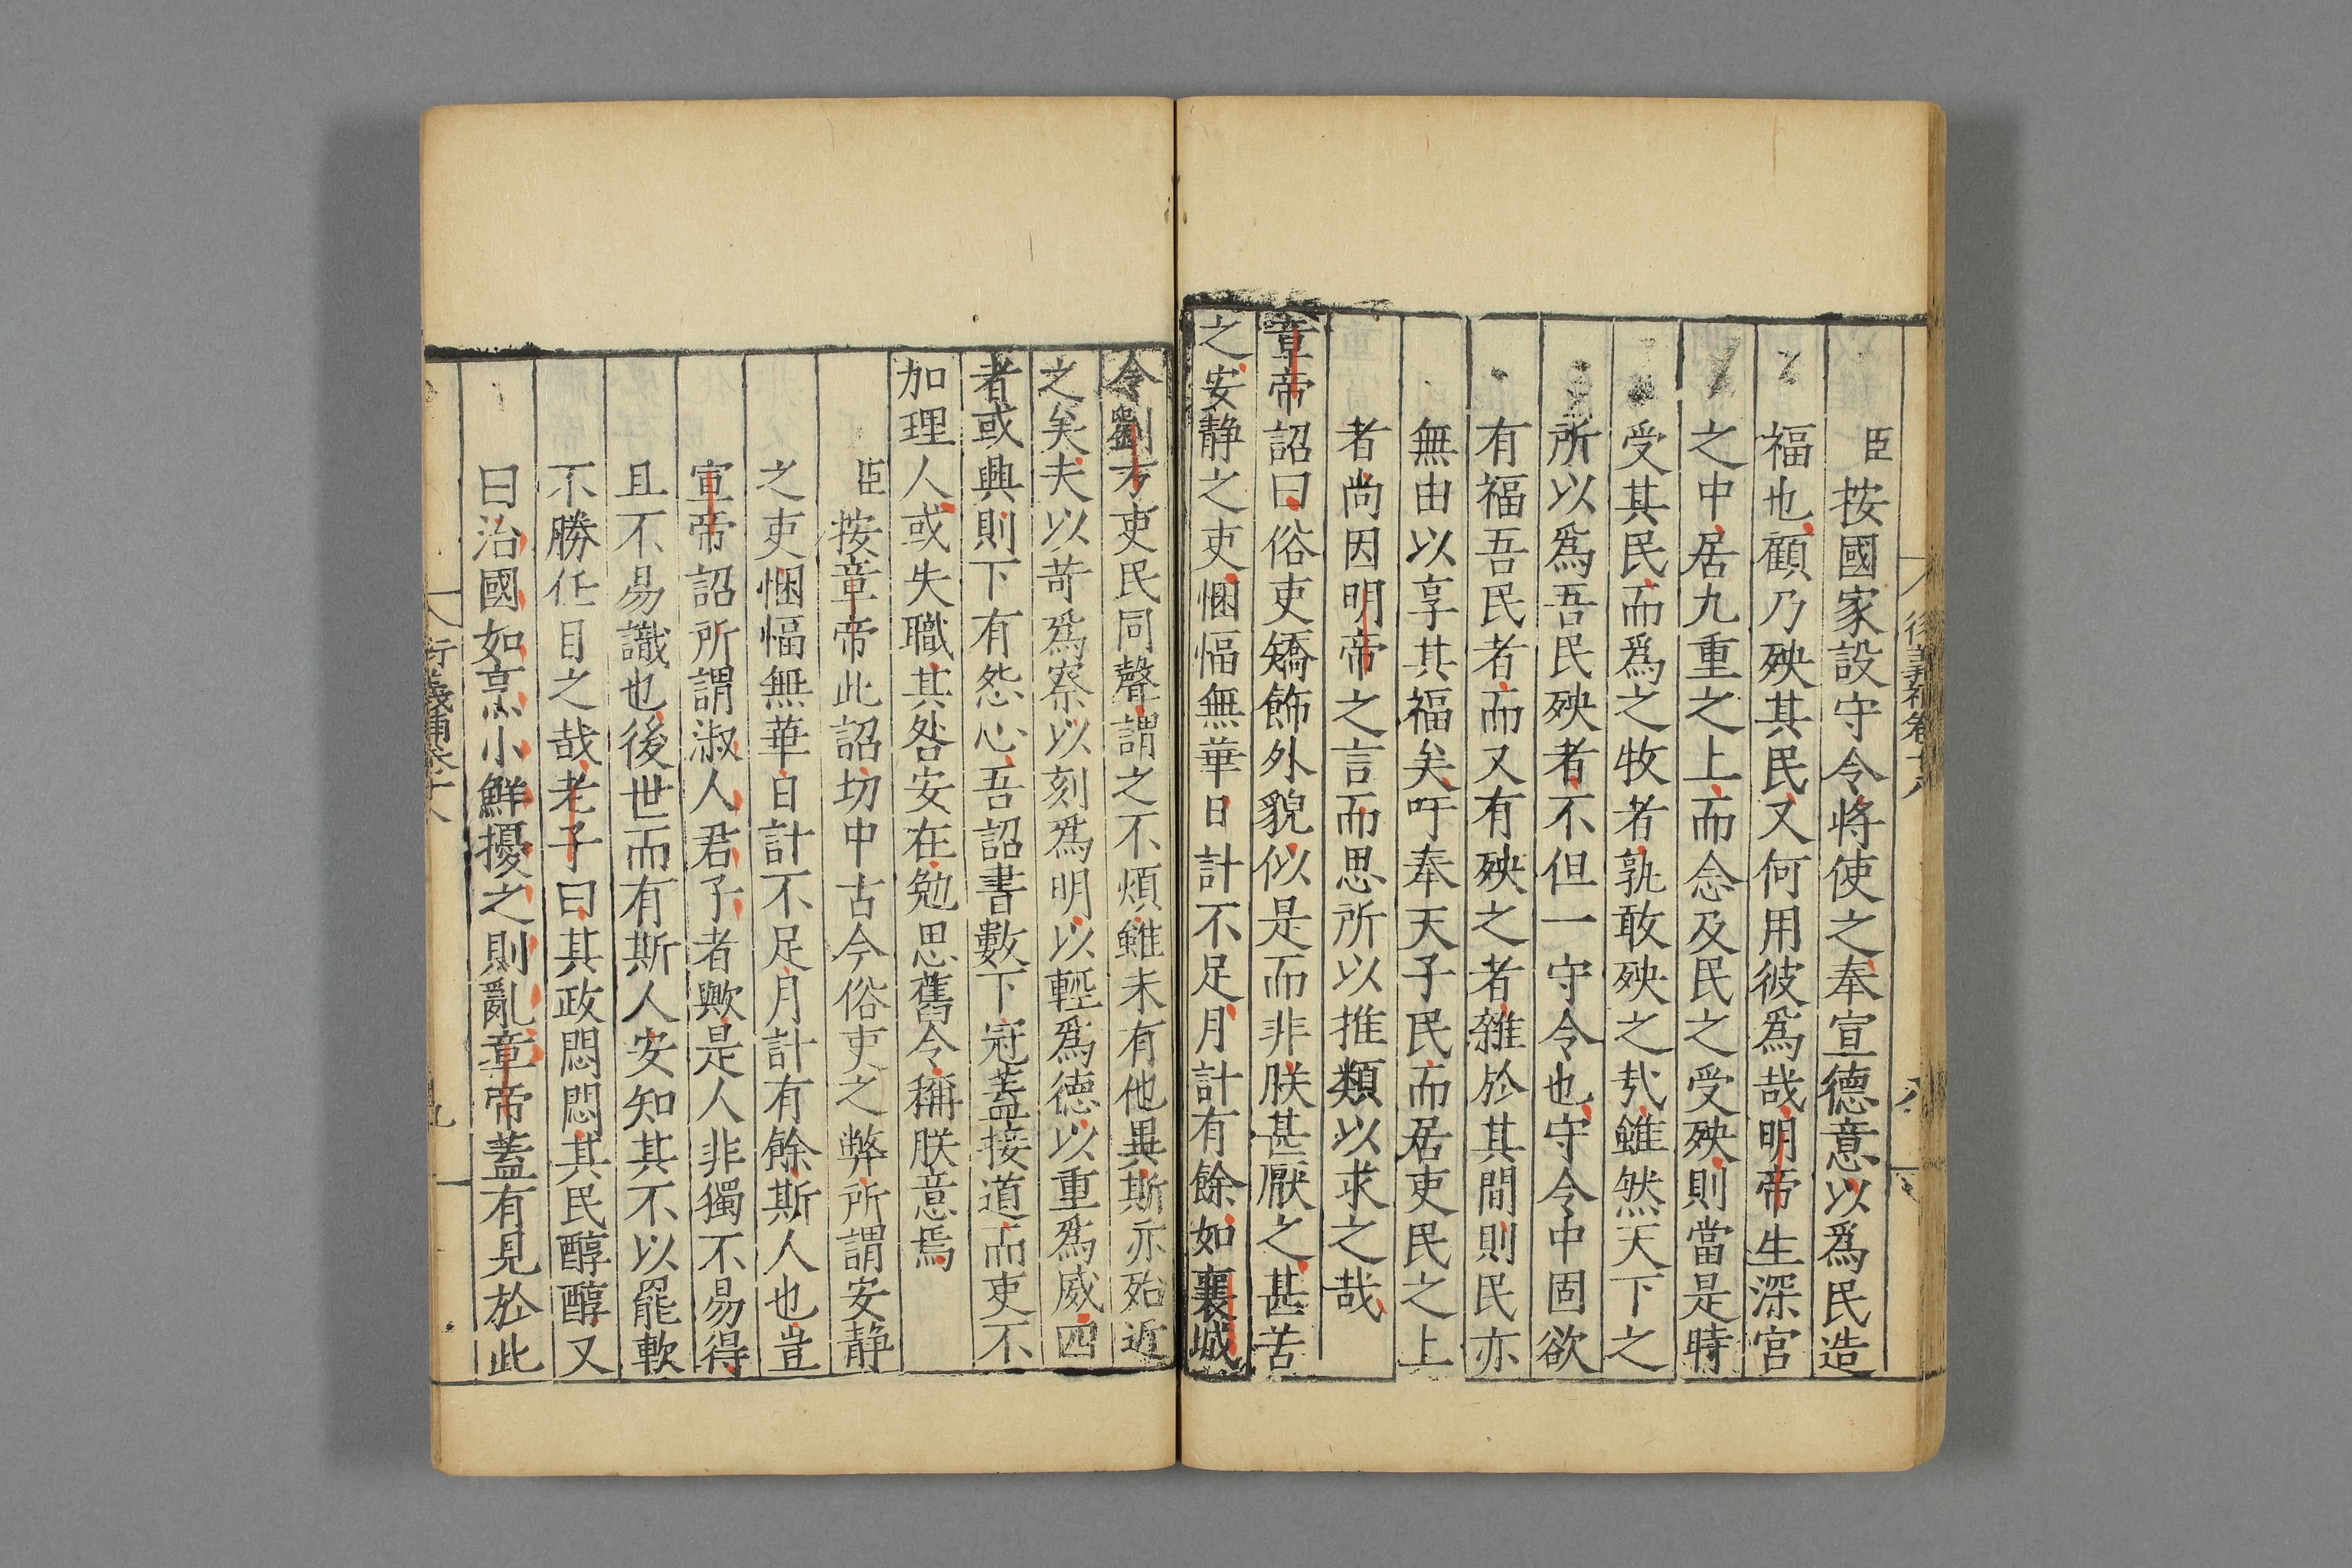 臣按國家設守令將使之奉宣德意以爲民造
福也顧乃殃其民又何用彼爲哉明帝生深宮
之中居九重之上而念及民之受殃則當是時
受其民而爲之牧者孰敢殃之㢤雖然天下之
所以爲吾民殃者不但一守令也守令中固欲
有福吾民者而又有殃之者雜於其間則民亦
無由以享其福矣吁奉天子民而居吏民之上
者尚因明帝之言而思所以推類以求之哉
章帝詔曰俗吏矯飾外貌似是而非朕甚厭之甚苦
之安静之吏悃愊無華日計不足月計有餘如襄城
令劉方吏民同聲謂之不煩雖未有他異斯亦殆近
之矣夫以苛爲察以刻爲明以輕爲德以重爲威四
者或興則下有怨心吾詔書數下冠蓋接道而吏不
加理人或失職其咎安在勉思舊令稱朕意焉
臣按章帝此詔切中古今俗吏之弊所謂安静
之吏悃愊無華日計不足月計有餘斯人也豈
宣帝詔所謂淑人君子者歟是人非獨不易得
且不易識也後世而有斯人安知其不以罷軟
不勝任目之哉老子曰其政悶悶其民醇醇又
曰治國如烹小鮮擾之則亂章帝蓋有見於此